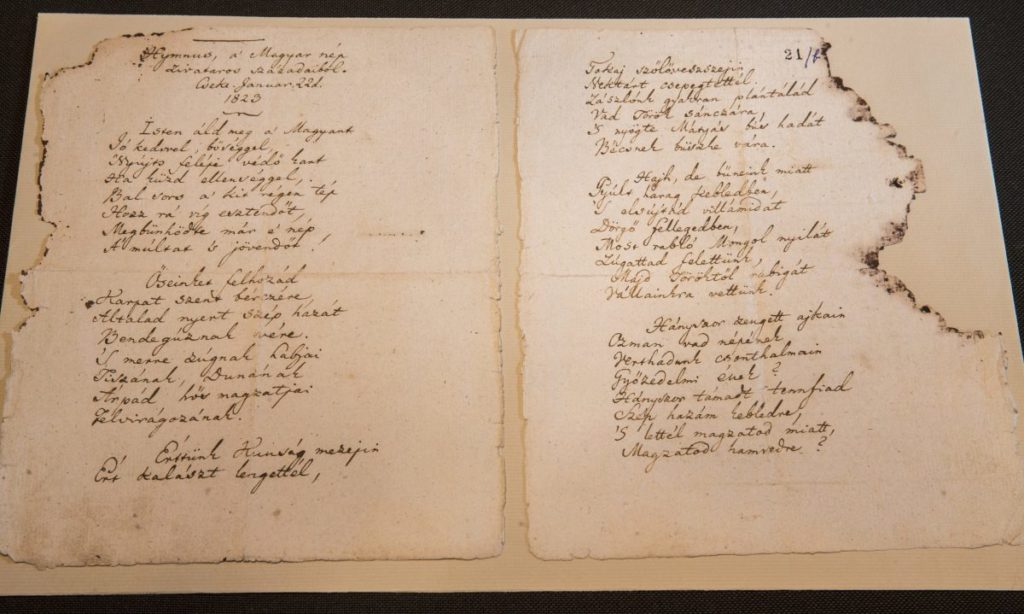 Hymnus, a' Magyar nép
zivataros századaiból.
Cseke Januar. 22d.
1823
Isten áld meg a' Magyart
Jó kedvvel, bőséggel,
Nyújts feléje védő kart
Ha küzd ellenséggel,
Bal sors a' kit régen tép
Hozz rá víg esztendőt,
Megbünhödte már e' nép
A' múltat 's jövendőt!
Őseinket felhozád
Kárpát szent bérczére,
Általad nyert szép hazát
Bendegúznak vére.
'S merre zúgnak habjai
Tiszának, Dunának
Árpád hős magzatjai
Felvirágozának.
Értünk Kunság mezejin
Ért kalászt lengettél,
21/b
Tokaj szőlővesszejin
Nektárt csepegtettél.
Zászlónk gyakran plántálád
Vad Török sánczára,
'S nyögte Mátyás bús hadát
Bécsnek büszke vára.
Hajh, de bűneink miatt
Gyúlt harag kebledben,
'S elsújtád villámidat
Dörgő fellegedben,
Most rabló Mongol nyilát
Zúgattad felettünk,
Majd Töröktől rabigát
Vállainkra vettünk.
Hányszor zengett ajkain
Ozman vad népének
Vert hadunk csonthalmain
Győzedelmi ének?
Hányszor támadt tenfiad
Szép hazám kebledre,
'S lettél magzatod miatt,
Magzatod hamvedre?